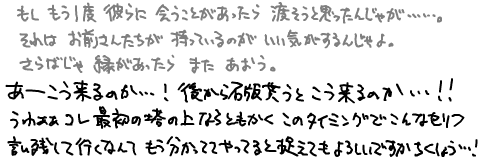 もし もう1度 彼らに 会うことがあったら 渡そうと思ったんじゃが……。
それは お前さんたちが 持っているのが いい気がするんじゃよ。
さらばじゃ 縁があったら また あおう。
あーこう来るのか…！後から石版貰うとこう来るのか…!!
うわぁぁコレ最初の塔の上ならともかくこのタイミングでこんなセリフ
言い残して行くなんてもう分かっててやってると捉えてもよろしいですかちくしょう…!